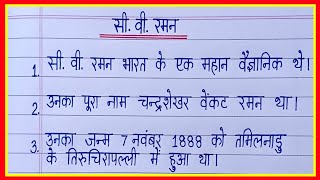 सी. वी. रमन
1. सी. वी. रमन भारत के एक महान वैज्ञानिक थे।
2. उनका पूरा नाम चन्द्रशेखर वेंकट रमन था।
3. उनका जन्म 7 नवंबर 1888 को तमिलनाडु
के तिरुचिरापल्ली में हुआ था।